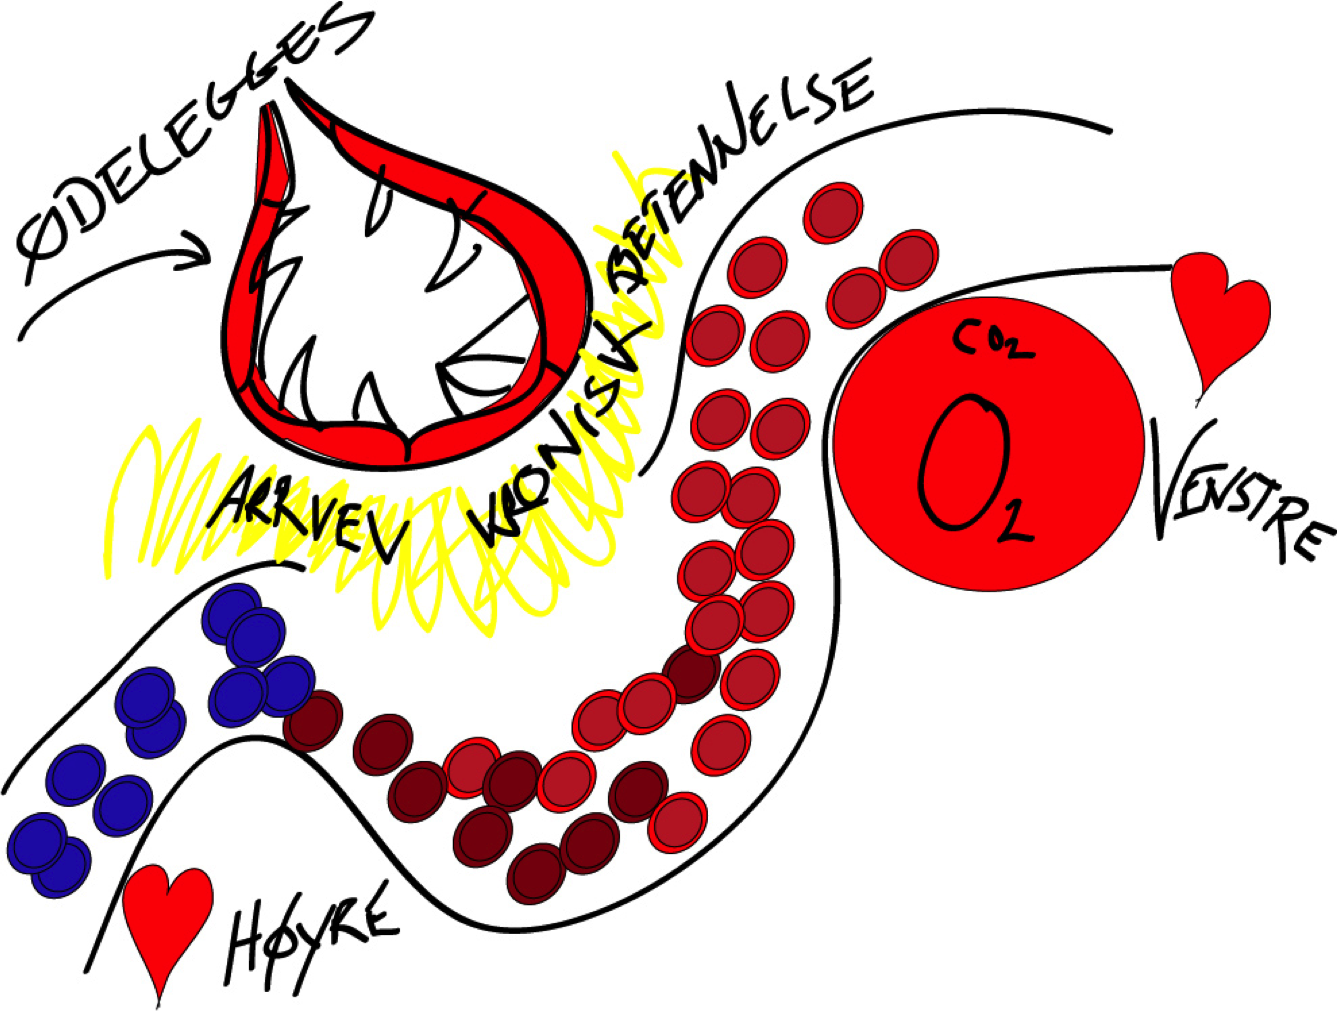 ØDELEGGES
ARRVEV
KRONISK BETENNELSE
CO2
O2
VENSTRE
HØYRE